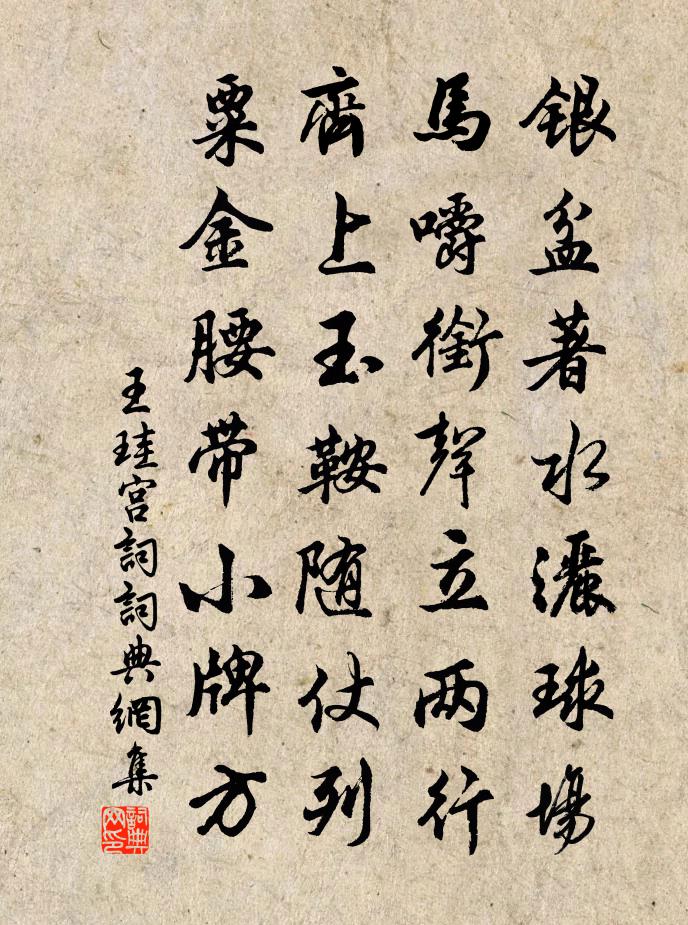 銀盆著水灑球場
馬嚼銜聲立两行
齊上玉鞍随仗列
粟金腰带小牌方
王珪宫詞詞典網集
詞典
网印